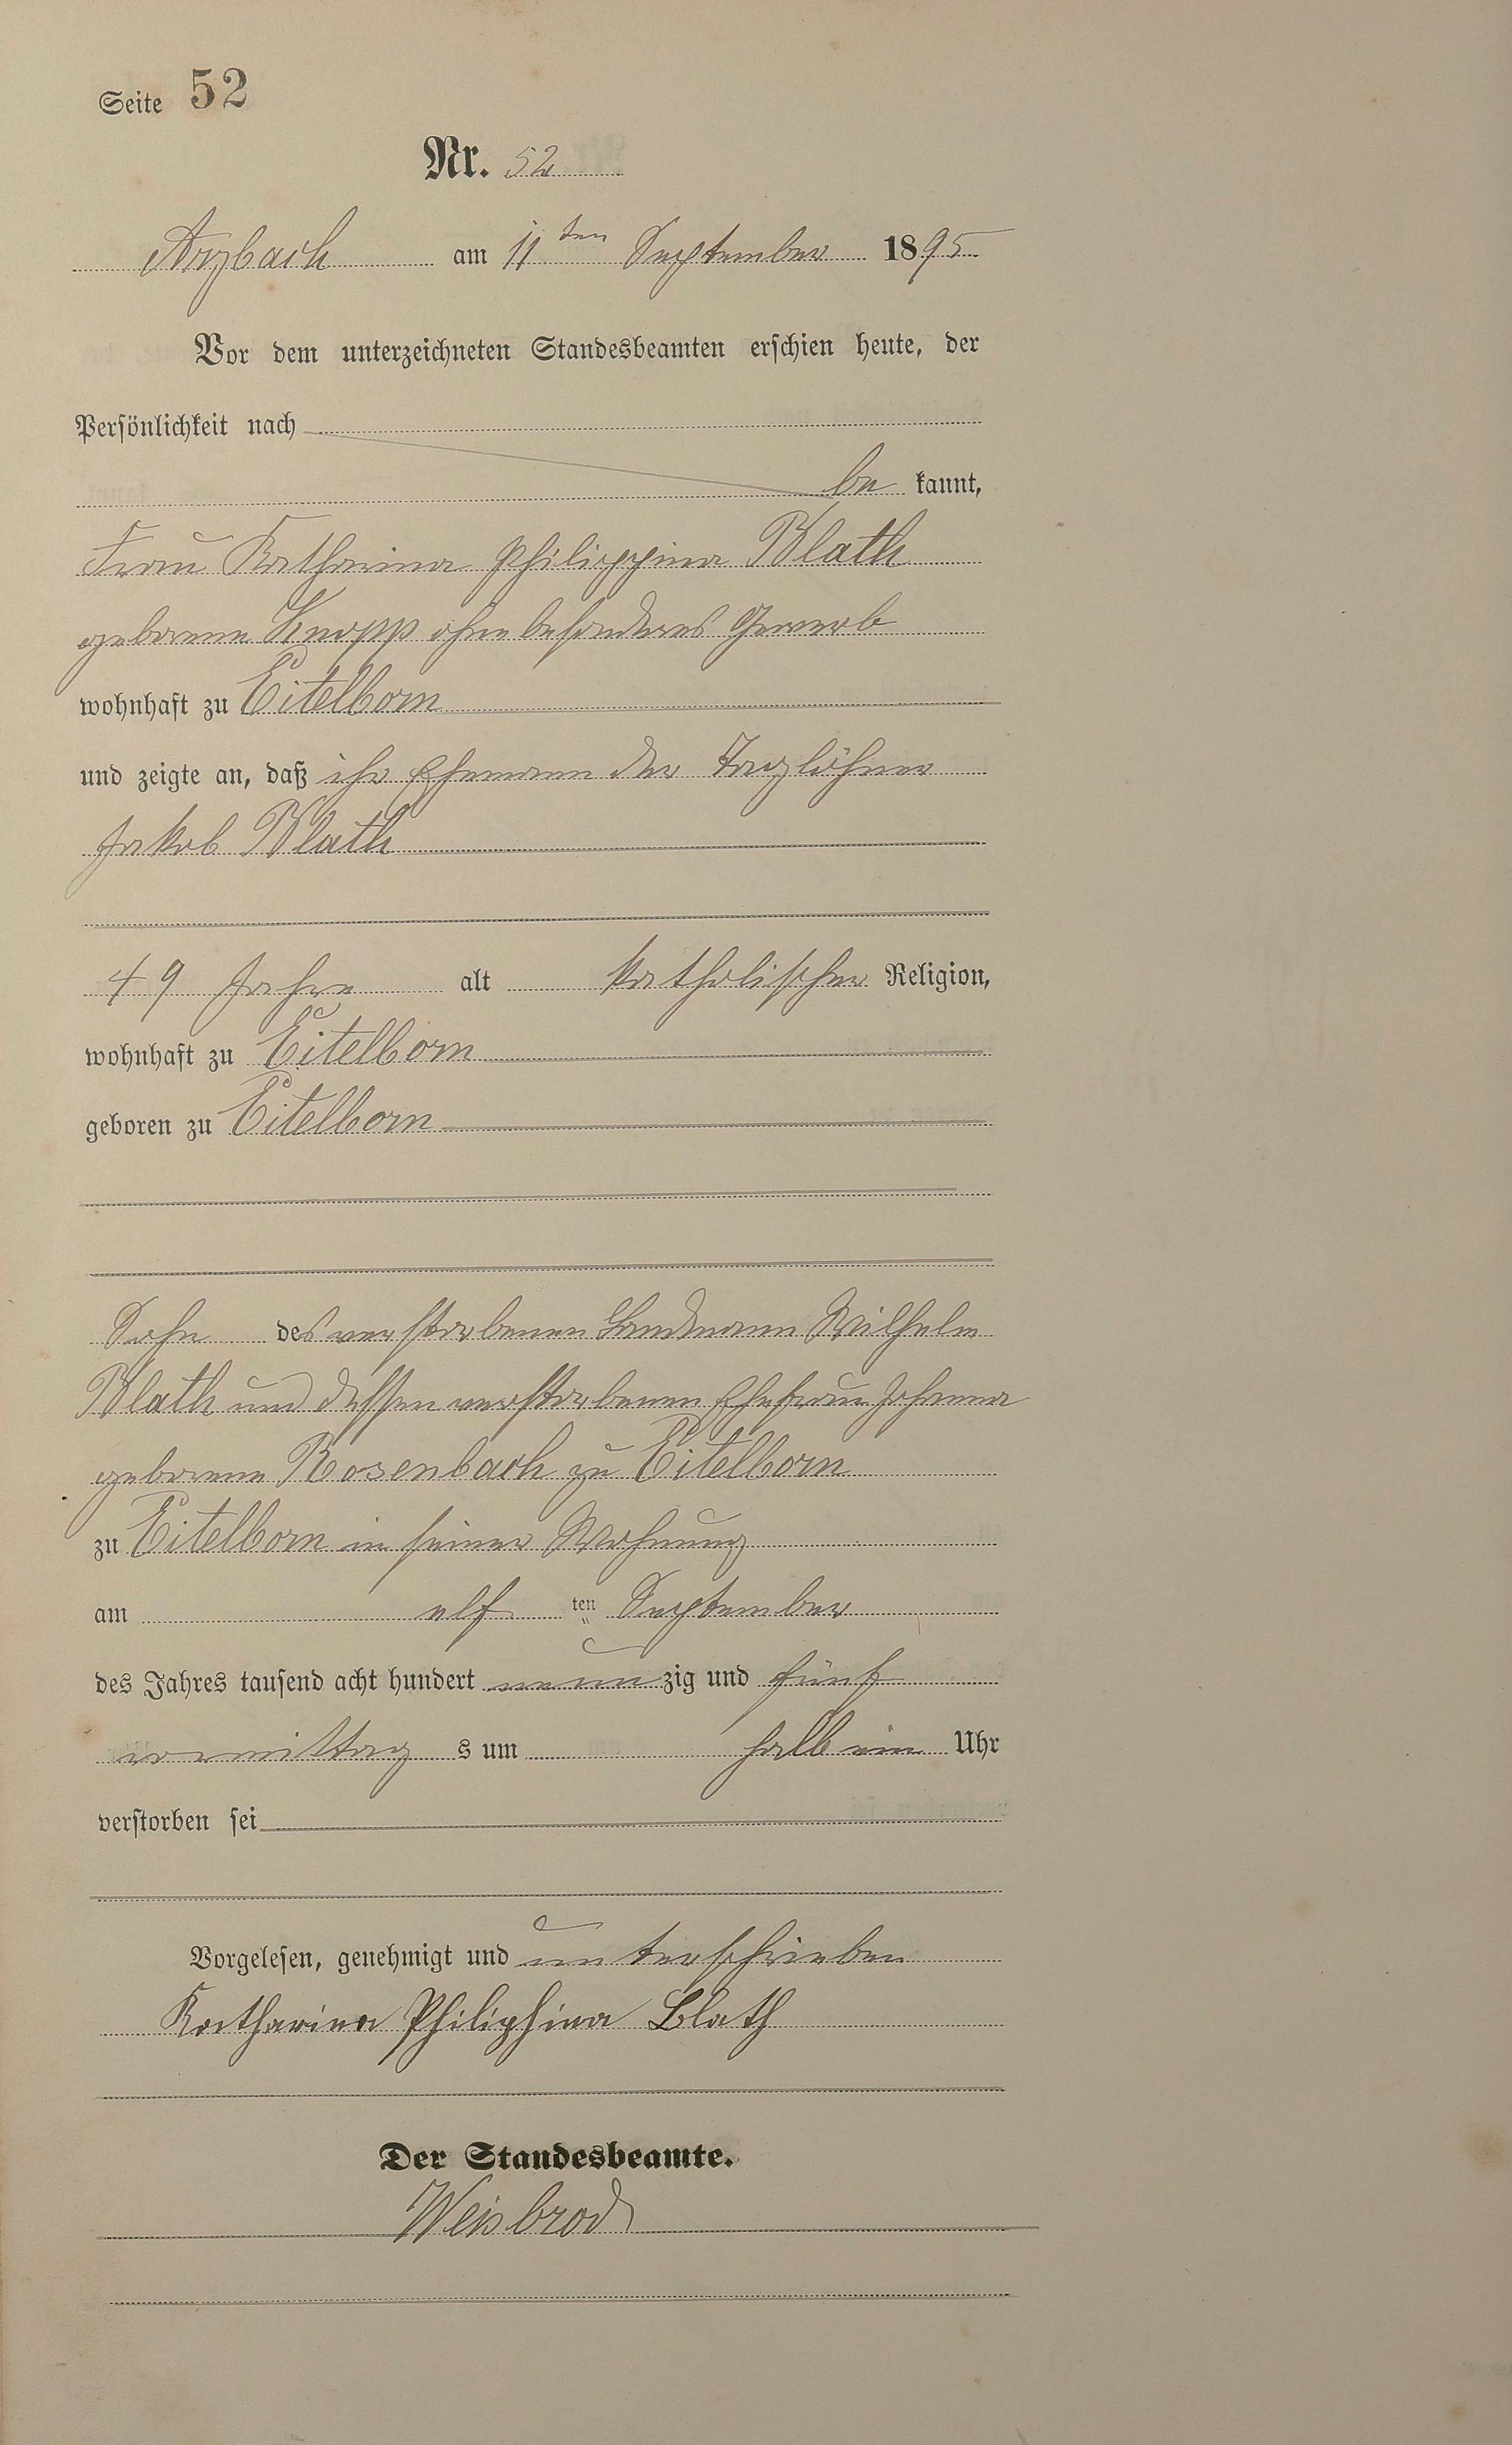 Seite 52
Nr. 52
Arzbach am 11ten September 1895
Vor dem unterzeichneten Standesbeamten erschien heute, der
Persönlichkeit nach
be kannt,
Frau Katharina Philippina Blath
geborene Knopp ohne besonderes Gewerb
wohnhaft zu Eitelborn
und zeigte an, daß ihr Ehemann der Taglöhner
Jakob Blath
49 Jahre alt katholischer Religion,
wohnhaft zu Eitelborn
geboren zu Eitelborn
Sohn des verstorbenen Landmann Wilhelm
Blath und dessen verstorbenen Ehefrau Johanna
geborene Rosenbach zu Eitelborn
zu Eitelborn in seiner Wohnung
am elf ten September
des Jahres tausend acht hundert neun zig und fünf
vormittag s um halb ein Uhr
verstorben sei
Vorgelesen, genehmigt und unterschrieben
Katharina Philiphina Blath
Der Standesbeamte.
Weisbrod